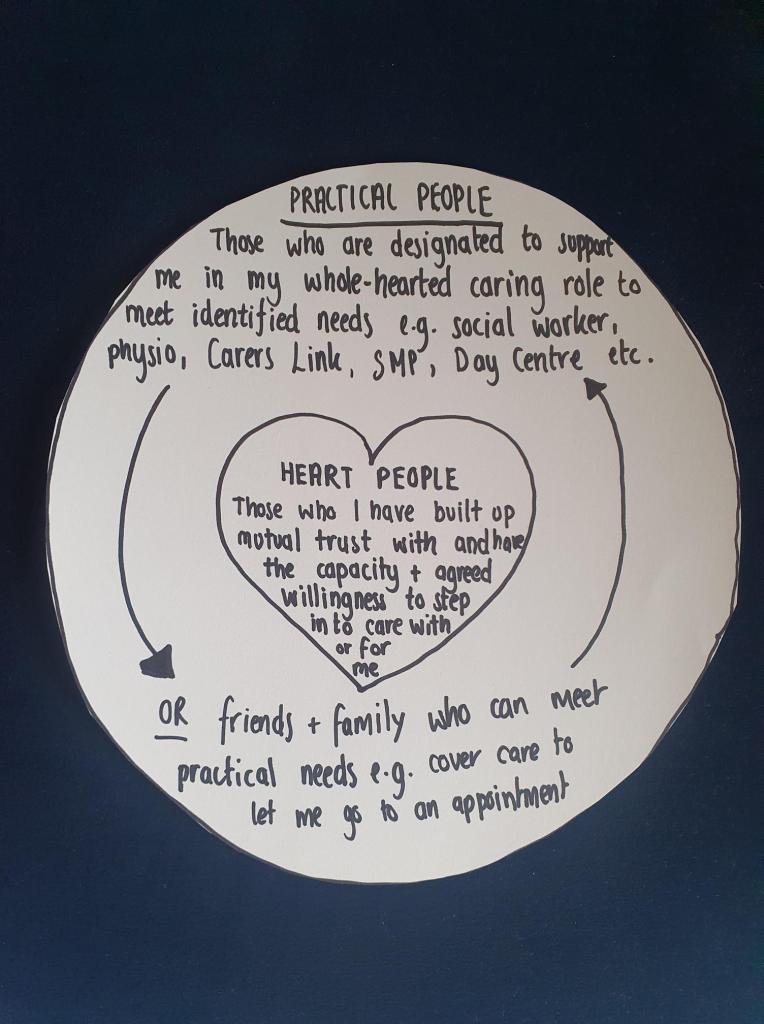 PRACTICAL PEOPLE
Those who are designated to support
me in my whole-hearted caring role to
meet identified needs e.g. social worker,
physio, Carers Link, SMP, Day Centre etc.
HEART PEOPLE
Those who I have built up
mutual trust with and have
the capacity + agreed
willingness to step
in to care with
or for
me
OR friends + family who can meet
practical needs e.g. cover care to
let me go to an appointment